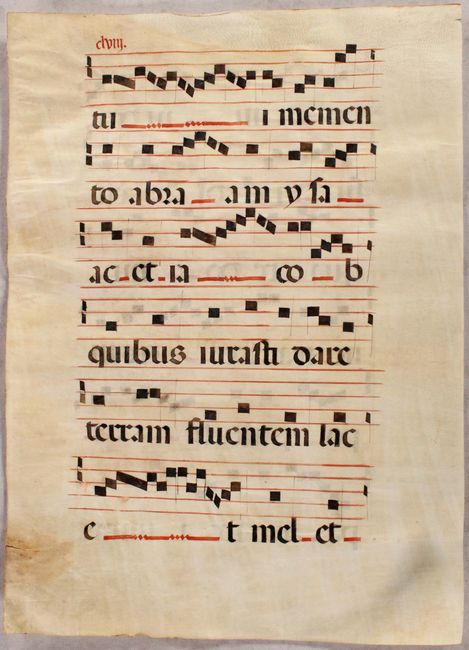 clviij.
tu i memen
to abra am ysa
ac et ia co b
quibus iurasti dare
terram fluentem lac
e t mel et